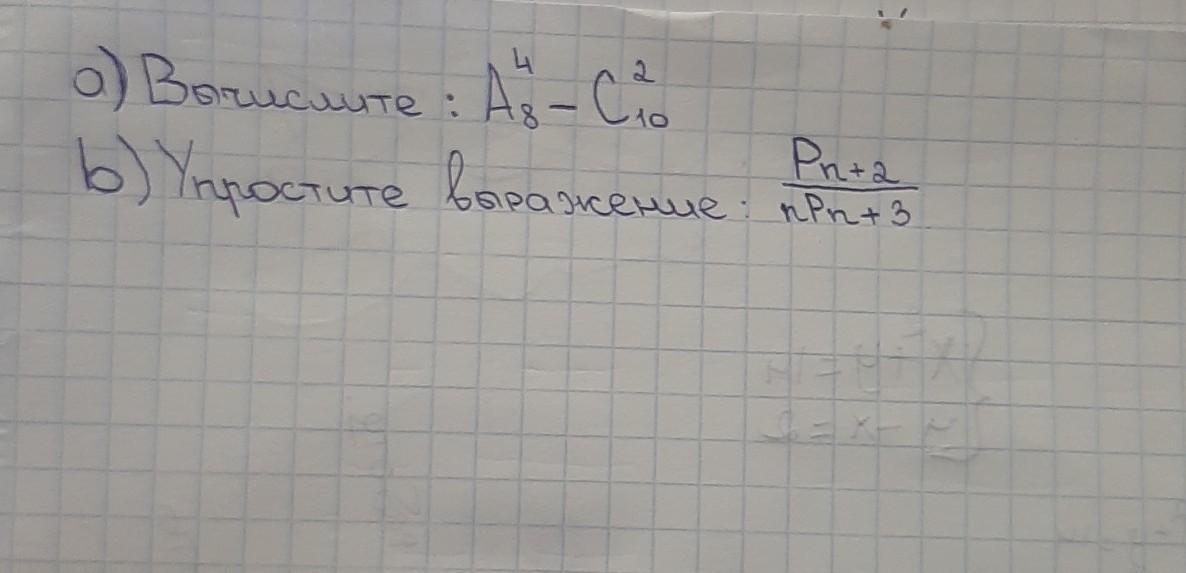 a) Вычислите: A₈⁴ – C₁₀²
b) Упростите выражение: Pn+2 / nPn+3